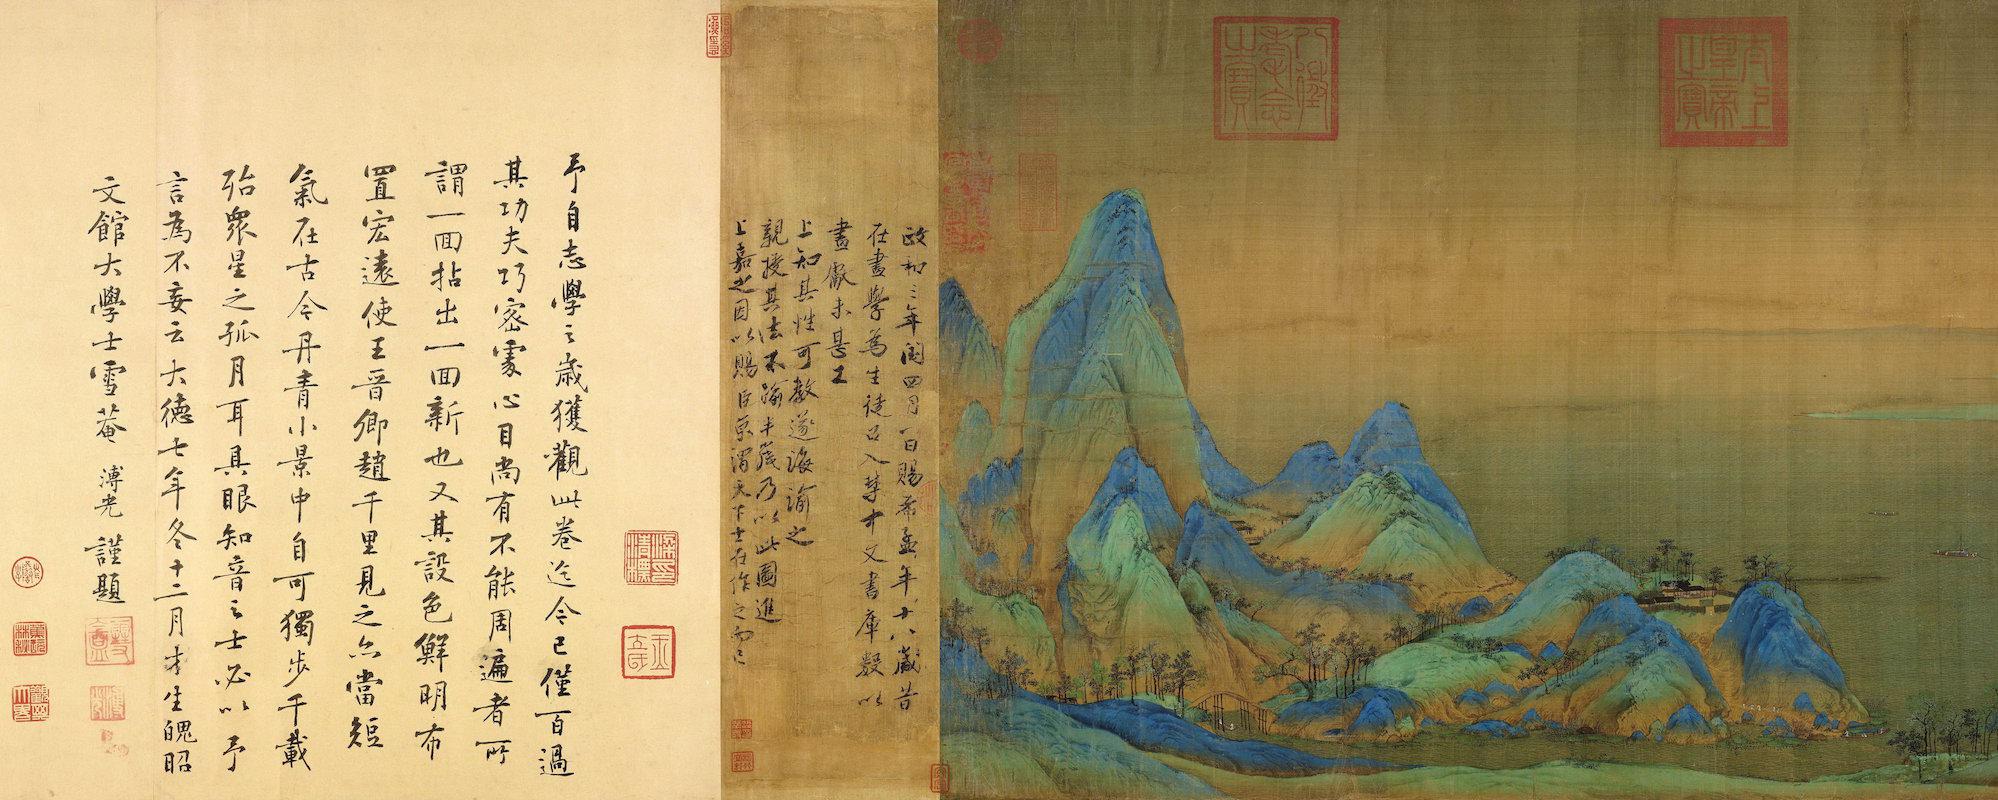 政和三年閏四月一日賜希孟年十八歲昔
在畫學為生徒召入禁中文書庫數以
畫獻未甚工
上知其性可教遂誨諭之
親授其法不踰半歲乃以此圖進
上嘉之因以賜臣京謂天下士在作之而已
予自志學之歲獲觀此卷迄今已僅百過
其功夫巧密處心目尚有不能周遍者所
謂一回拈出一回新也又其設色鮮明布
置宏遠使王晉卿趙千里見之亦當短
氣在古今丹青小景中自可獨步千載
殆眾星之孤月耳具眼知音之士必以予
言為不妄云大德七年冬十二月才生魄昭
文館大學士雪菴 溥光 謹題
太上
皇帝
之寶
八徵
耄念
之寶